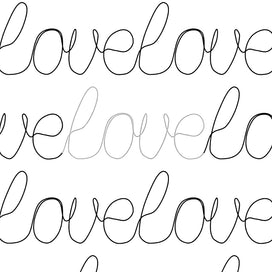 lovelove
velovelo
lovelove